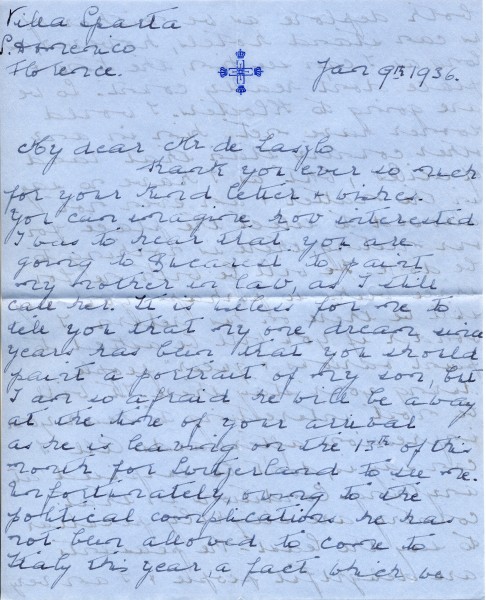 Villa Sparta
S. Domenico
Florence.
Jan 9th 1936.
My dear Mr de Laszlo
Thank you ever so much
for your kind letter & wishes.
You can imagine how interested
I was to hear that you are
going to Bucarest to paint
my mother in law, as I still
call her. It is useless for me to
tell you that my one dream since
years has been that you should
paint a portrait of my son, but
I am so afraid he will be away
at the time of your arrival
as he is leaving on the 13th of this
month for Switzerland to see me.
Unfortunately, owing to the
political complications he has
not been allowed to come to
Italy this year, a fact which we